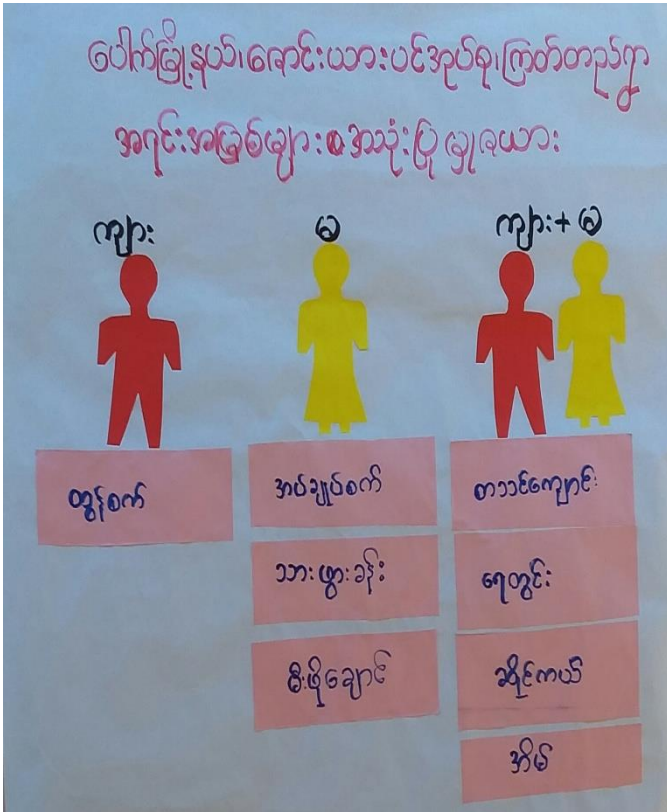 ပေါက်မြို့နယ်၊ဇောင်းယားပင်အုပ်စု၊ကြတ်တည်ရွာ
အရင်းအမြစ်များ၏အသုံးပြုမှုဇယား
ကျား
မ
ကျား+မ
ထွန်စက်
အပ်ချုပ်စက်
စာသင်ကျောင်း
သားဖွားခန်း
ရေတွင်း
မီးဖိုချောင်
ဆိုင်ကယ်
အိမ်